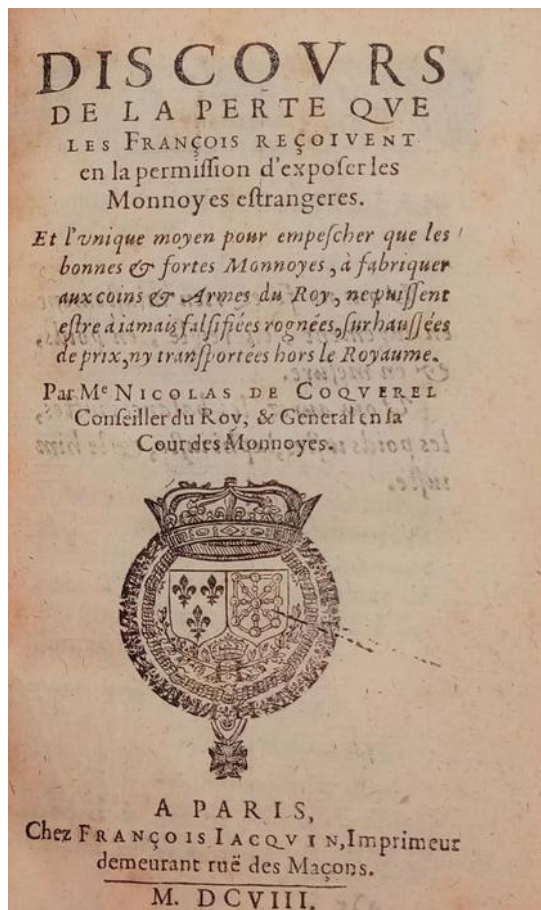 DISCOVRS
DE LA PERTE QVE
LES FRANÇOIS REÇOIVENT
en la permiſſion d'expoſer les
Monnoyes eſtrangeres.
Et l'vnique moyen pour empeſcher que les
bonnes & fortes Monnoyes, à fabriquer
aux coins & Armes du Roy, ne puiſſent
eſtre à iamais falſifiées rognées, ſurhauſſées
de prix, ny tranſportées hors le Royaume.
Par Mᵉ NICOLAS DE COQVEREL
Conſeiller du Roy, & General en ſa
Cour des Monnoyes.
A PARIS,
Chez FRANÇOIS IACQVIN, Imprimeur
demeurant ruë des Maçons.
M. DCVIII.